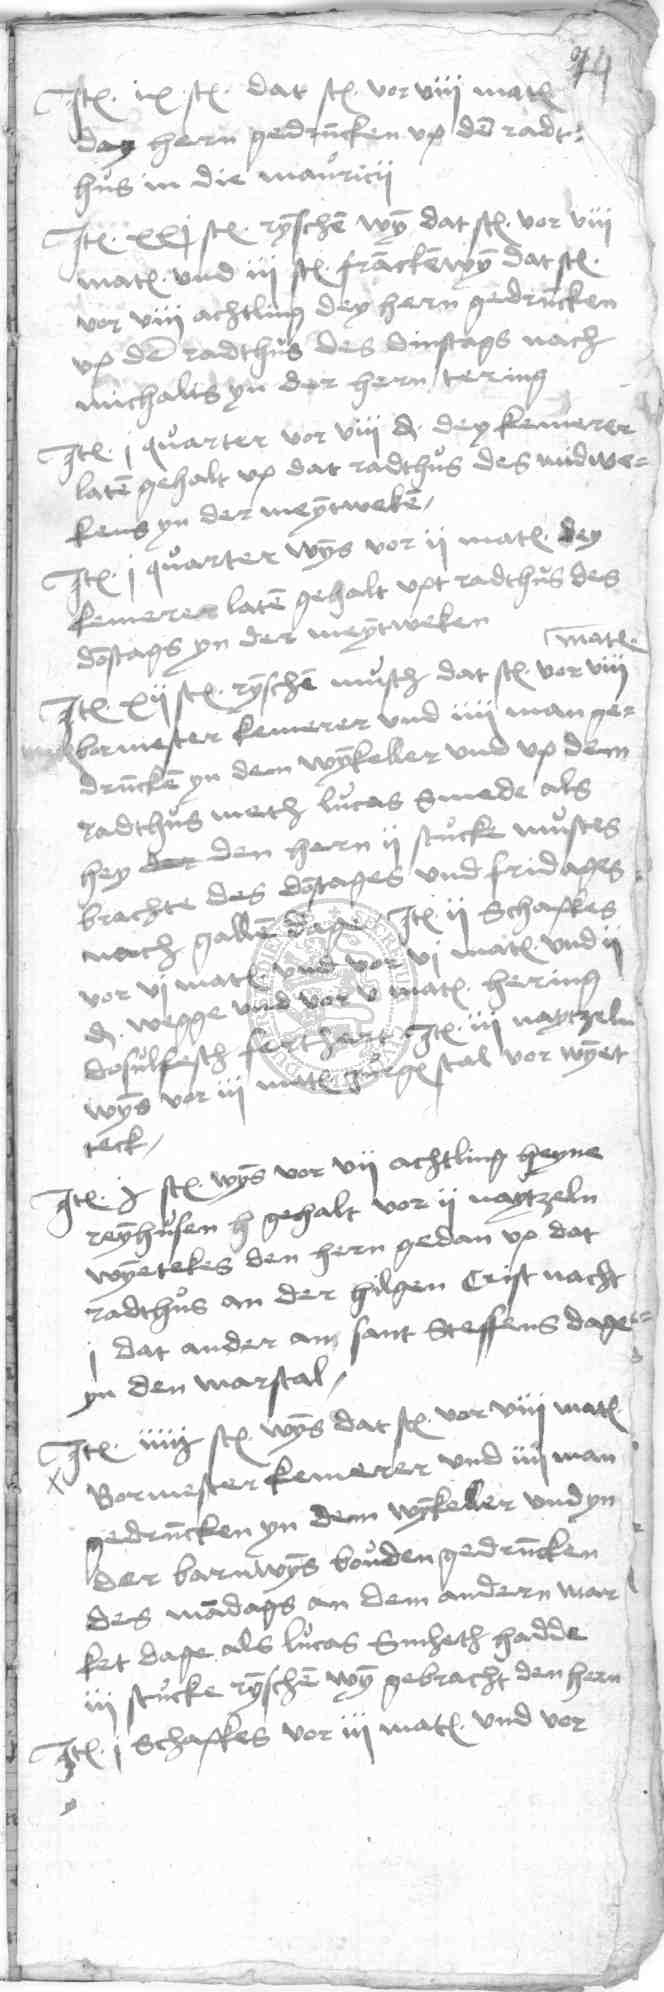 74
Itē. ix. stē. dat stē. vor viii matē
dey hern gedruncken vp dē radt-
hus in die mauricij
Itē. xxj stē. rynschē wyn dat stē. vor viii
matē. vnd iii stē. franckēwyn dat stē.
vor viii achtling dey hern gedruncken
vp dē radthus des dinstags nach
michalis yn der hern tering
Itē. j quarter vor viii d. dey kemerer
latē gehalt vp dat radthus des midwe-
kens yn der meyntwekē
Itē. j quarter wyns vor ij matē. dey
kemerer latē gehalt vpt radthus des
dōstags yn der meyntweken
matē.
Itē. xij stē. rynschē musth dat stē. vor viii
bormester kemerer vnd iiii man ge-
drunckē yn dem wynkeller vnd vp dem
radthus meth lucas Smede als
hey der den hern ij stucke mustes
brachte des dōstages vnd fridages
nach gallē dage Itē. ij Schapkes
vor vj matē. vnd vor vj matē. vnd ij
d. wegge vnd vor v matē. hering
dosulfesth forthert Itē. iij noytzeln
wyns vor iij matē Jurge stal vor wynet
teck
Itē. j stē. wyns vor vij achtling heyne
reynhusen h gehalt vor ij noytzeln
wynetekes den hern gedan vp dat
radthus an der hilgen Crist nacht
j dat ander am sant Steffens dage
yn den marstal
Itē. iiiij stē. wyns dat stē. vor viii matē.
x Bormester kemerer vnd iiii man
gedruncken yn dem wynkeller vnd yn
der barnwyns bouden gedruncken
des mādags an dem andern mar
ket dage als lucas Smeth hadde
iij stucke rynschē wyn gebracht den hern
Itē. j Schapkes vor iij matē. vnd vor